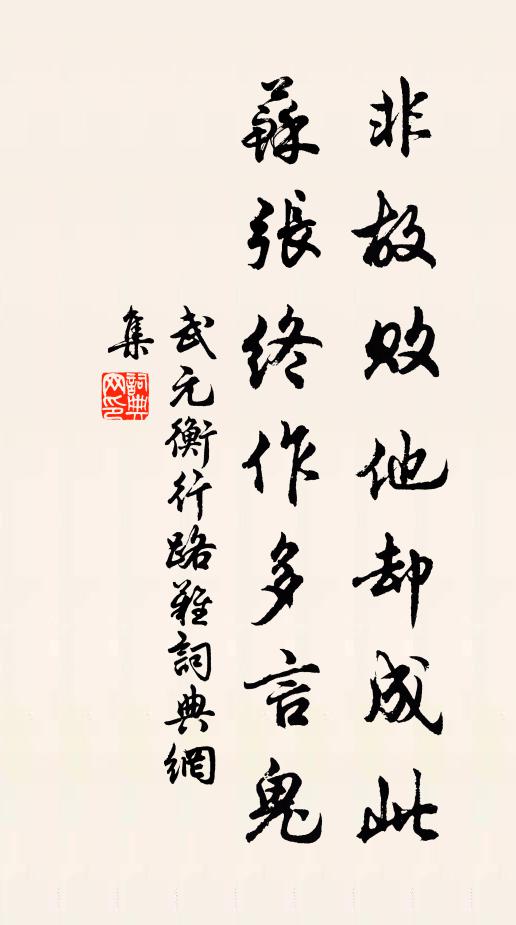 非故败他却成此
蘇張終作多言鬼
武元衡行路難詞典網
集
詞典
网印